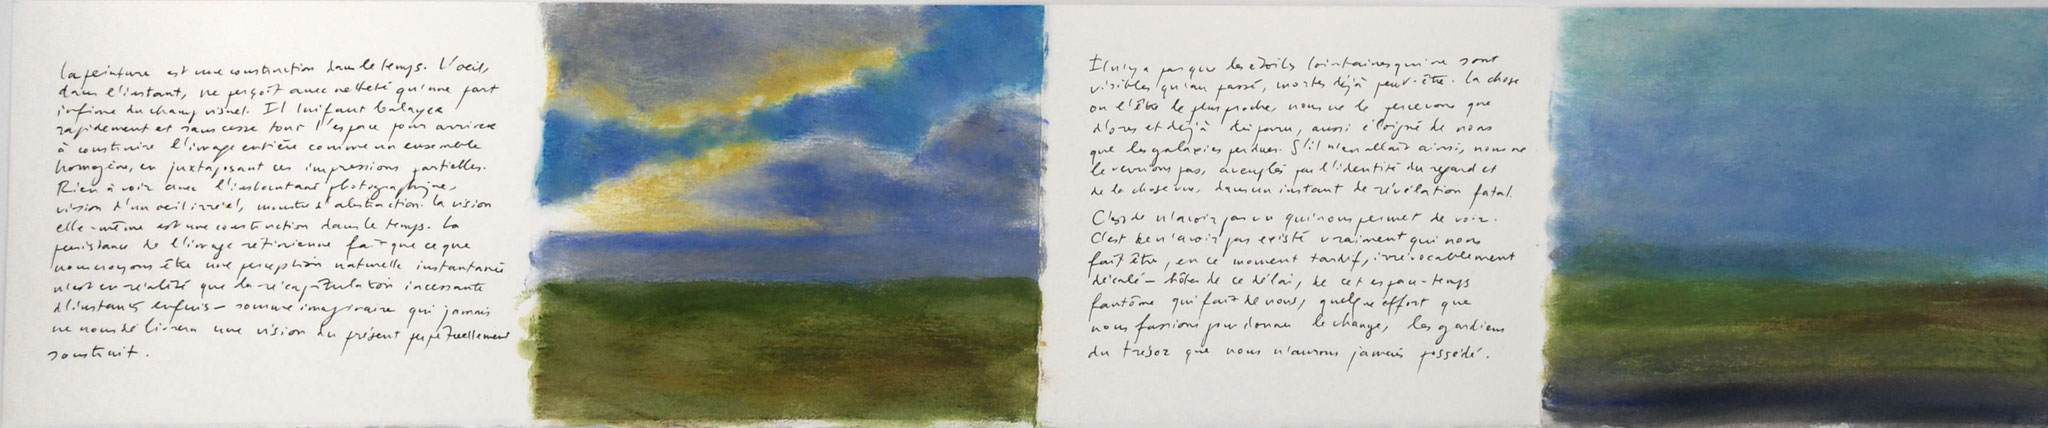 La peinture est une construction dans le temps. L'oeil,
dans l'instant, ne perçoit avec netteté qu'une part
infime du champ visuel. Il lui faut balayer
rapidement et sans cesse tout l'espace pour arriver
à construire l'image entière comme un ensemble
homogène, en juxtaposant ces impressions partielles.
Rien à voir avec l'instantané photographique,
vision d'un oeil irréel, monstre d'abstraction. La vision
elle-même est une construction dans le temps. La
persistance de l'image rétinienne fait que ce que
nous croyons être une perception naturelle instantanée
n'est en réalité que la récapitulation incessante
d'instants enfuis - somme imaginaire qui jamais
ne nous délivrera une vision du présent perpétuellement
soustrait.
Il n'y a pas que les étoiles lointaines qui ne sont
visibles qu'au passé, mortes déjà peut-être. La chose
ou l'être le plus proche nous ne le percevons que
d'ores et déjà disparu, aussi éloigné de nous
que les galaxies perdues. S'il n'en allait ainsi, nous ne
le verrions pas, aveuglés par l'identité du regard et
de la chose vue, dans un instant de révélation fatal.
C'est de n'avoir pas vu qui nous permet de voir.
C'est de n'avoir pas existé vraiment qui nous
fait être, en ce moment tardif, irrévocablement
décalé - hôtes de ce délai, de cet espace-temps
fantôme qui fait de nous, quelque effort que
nous fassions pour donner le change, les gardiens
du trésor que nous n'aurons jamais possédé.